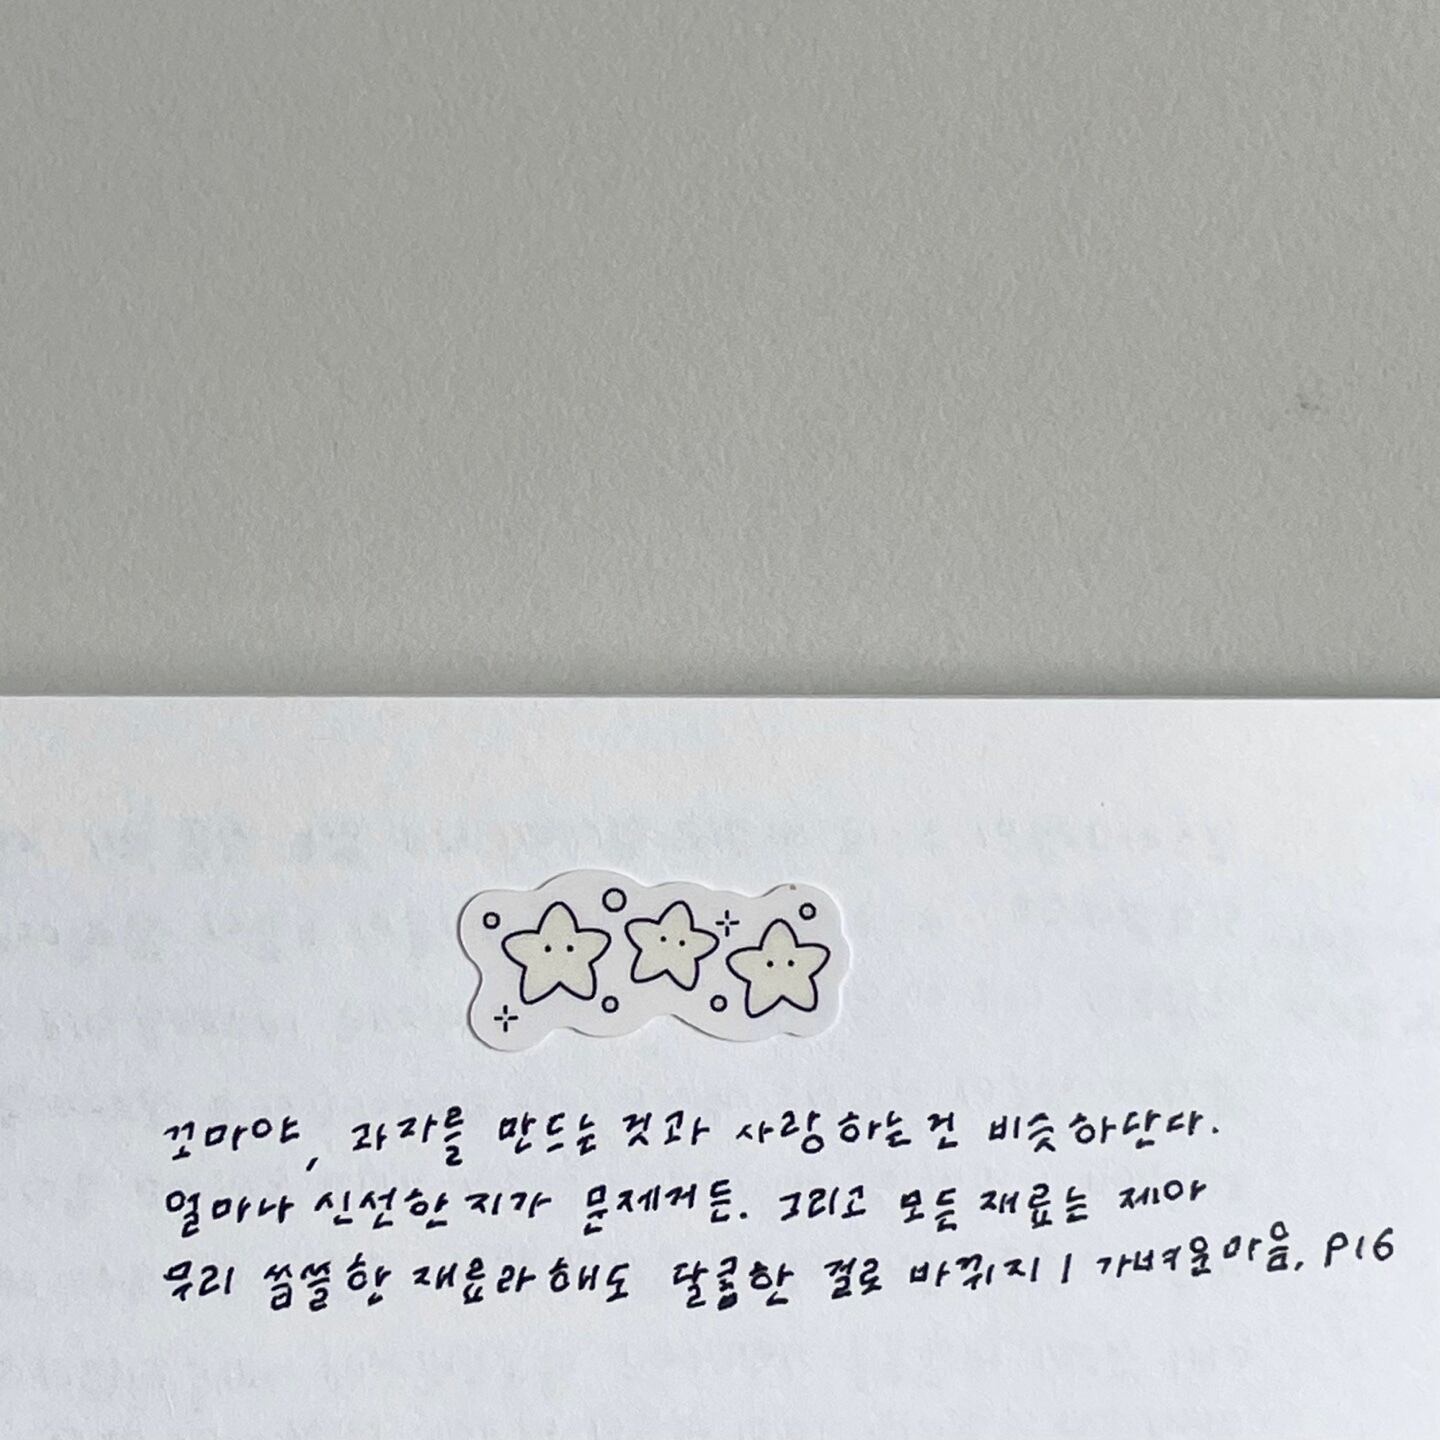 꼬마야, 과자를 만드는 것과 사랑하는 건 비슷하단다.
얼마나 신선한지가 문제거든. 그리고 모든 재료는 제아
무리 씁쓸한 재료라 해도 달콤한 걸로 바뀌지 | 가벼운마음, P16